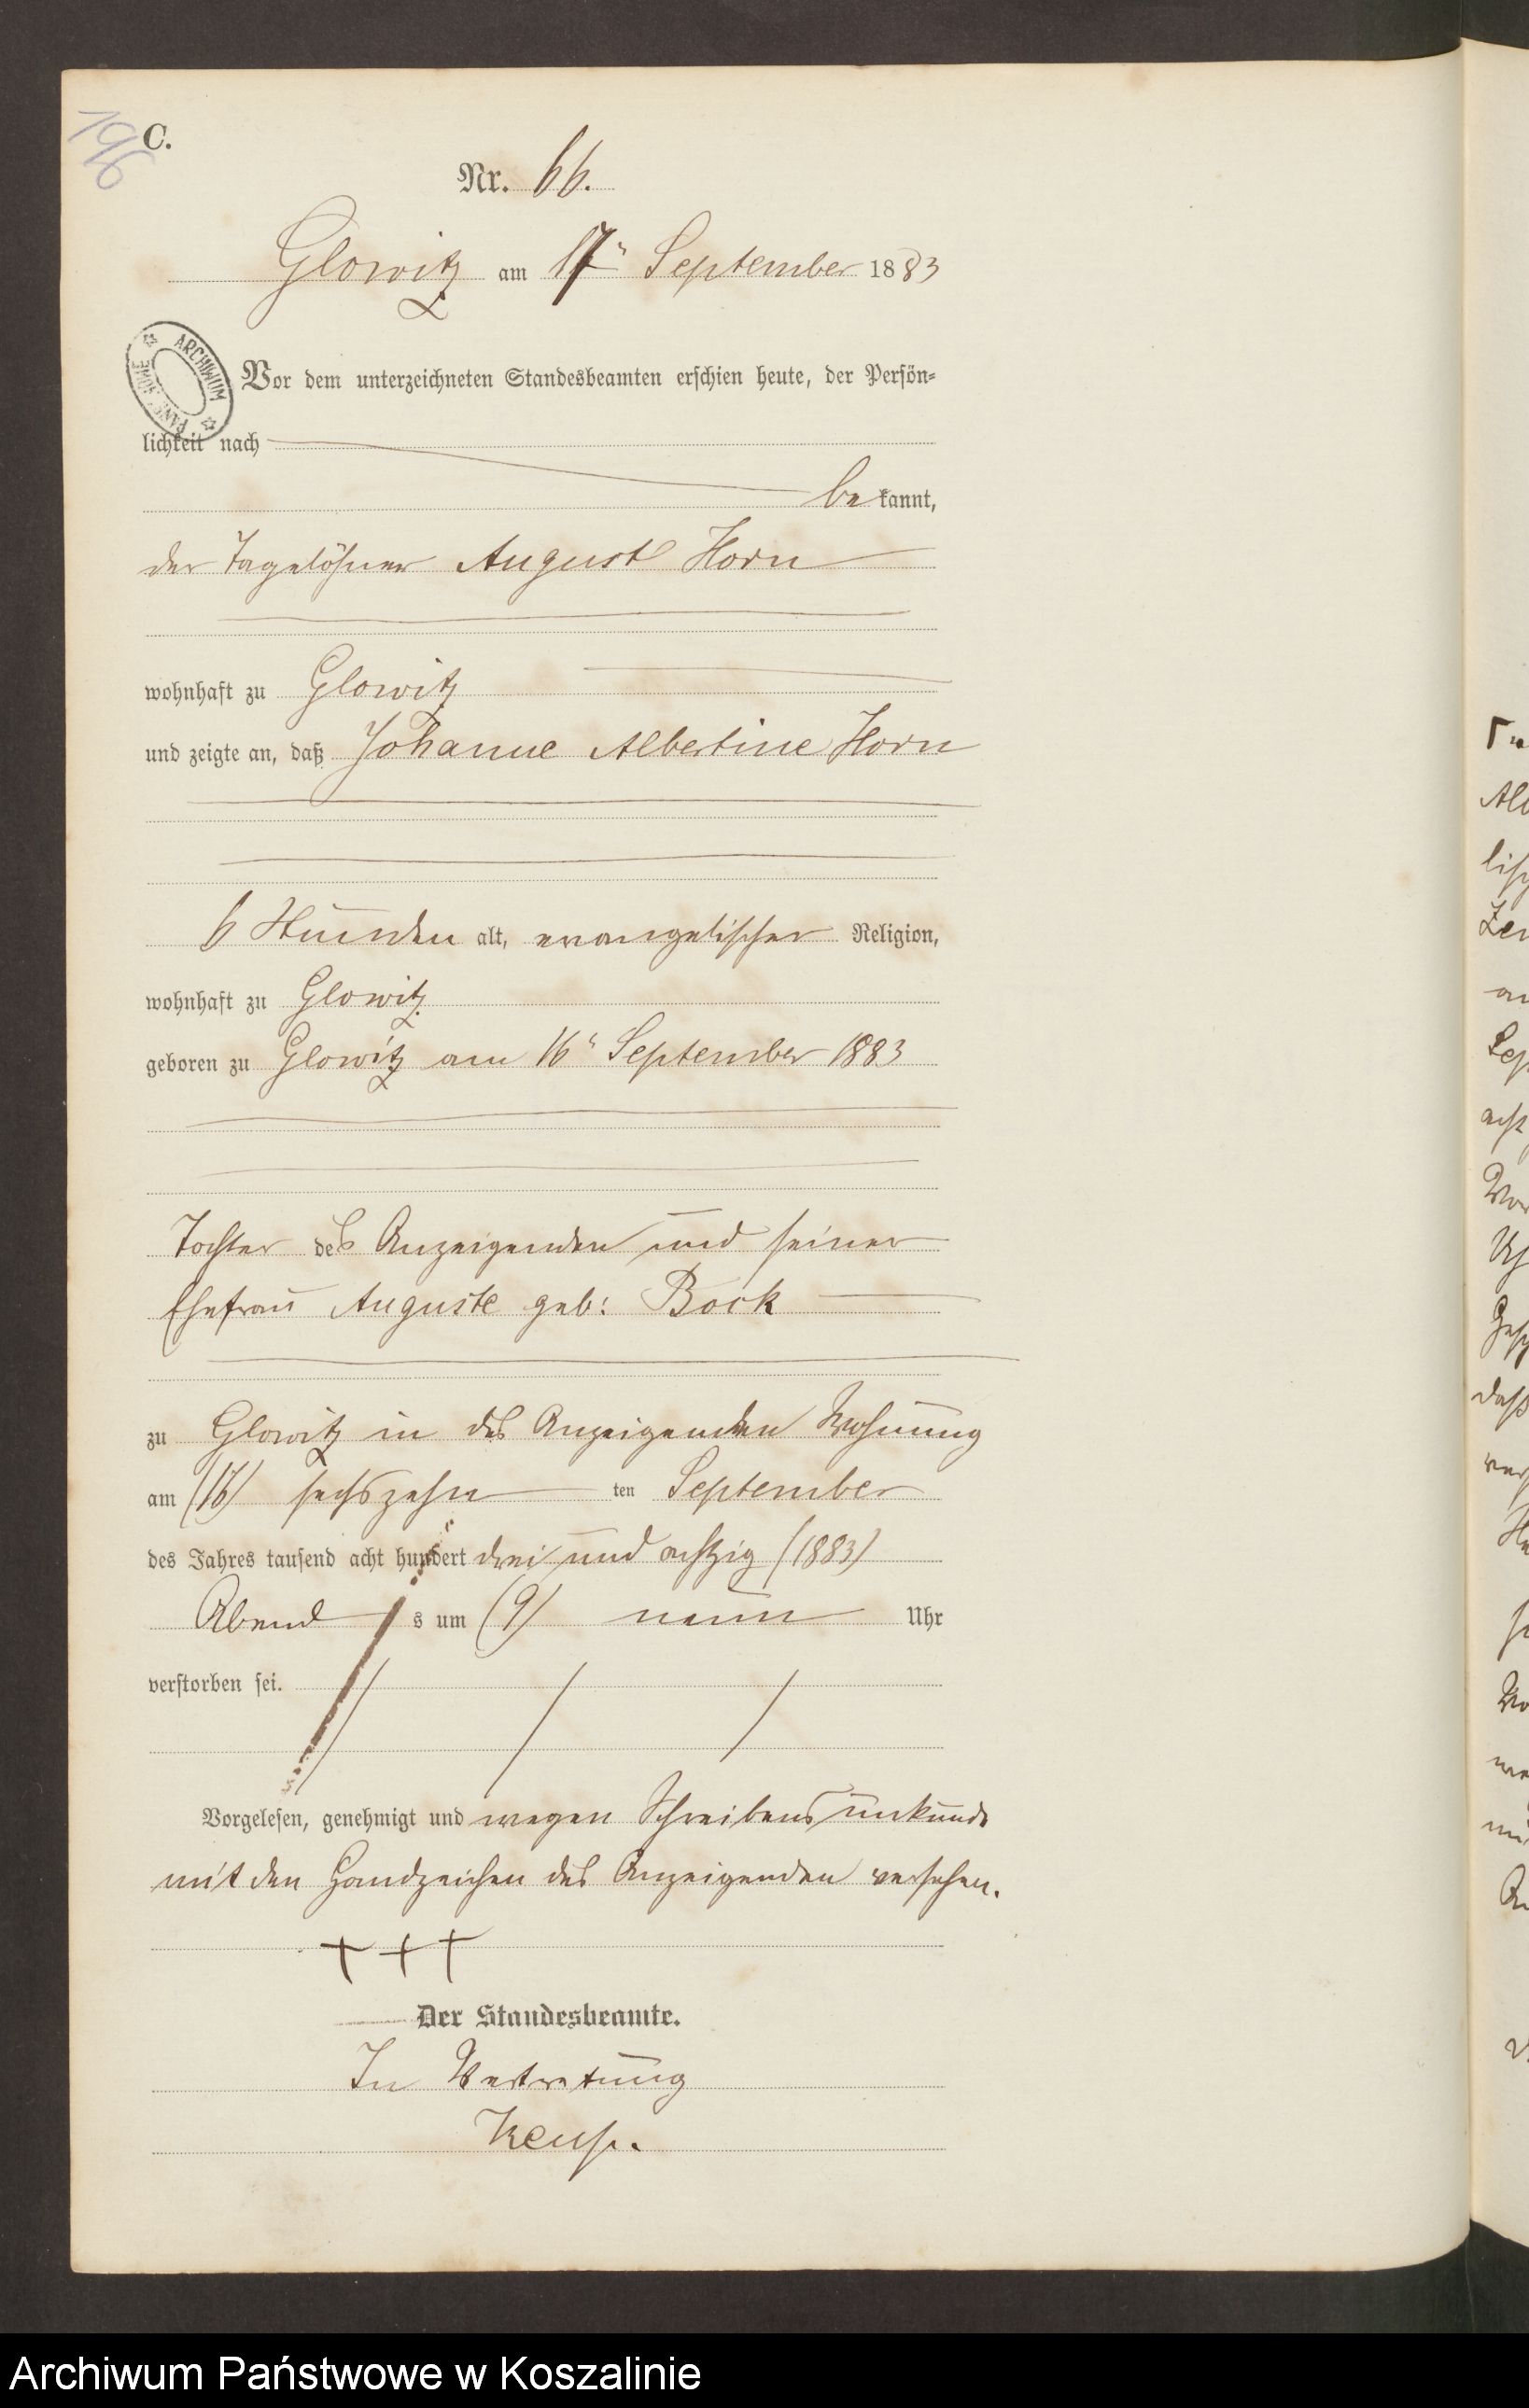 196
C.
Nr. 66.
Glowitz am 17ᵗ September 1883
ARCHIWUM
Vor dem unterzeichneten Standesbeamten erschien heute, der Persön-
lichkeit nach
bekannt,
der Tagelöhner August Horn
wohnhaft zu Glowitz
und zeigte an, daß Johanne Albertine Horn
6 Stunden alt, evangelischer Religion,
wohnhaft zu Glowitz
geboren zu Glowitz am 16ᵗ September 1883
Tochter des Anzeigenden und seiner
Ehefrau Auguste geb: Bock
zu Glowitz in des Anzeigenden Wohnung
am (16) sechszehn ten September
des Jahres tausend acht hundert drei und achtzig (1883)
Abend s um (9) neun Uhr
verstorben sei.
Vorgelesen, genehmigt und wegen Schreibensunkunde
mit den Handzeichen des Anzeigenden versehen.
+ + +
Der Standesbeamte.
In Vertretung
Archiwum Państwowe w Koszalinie